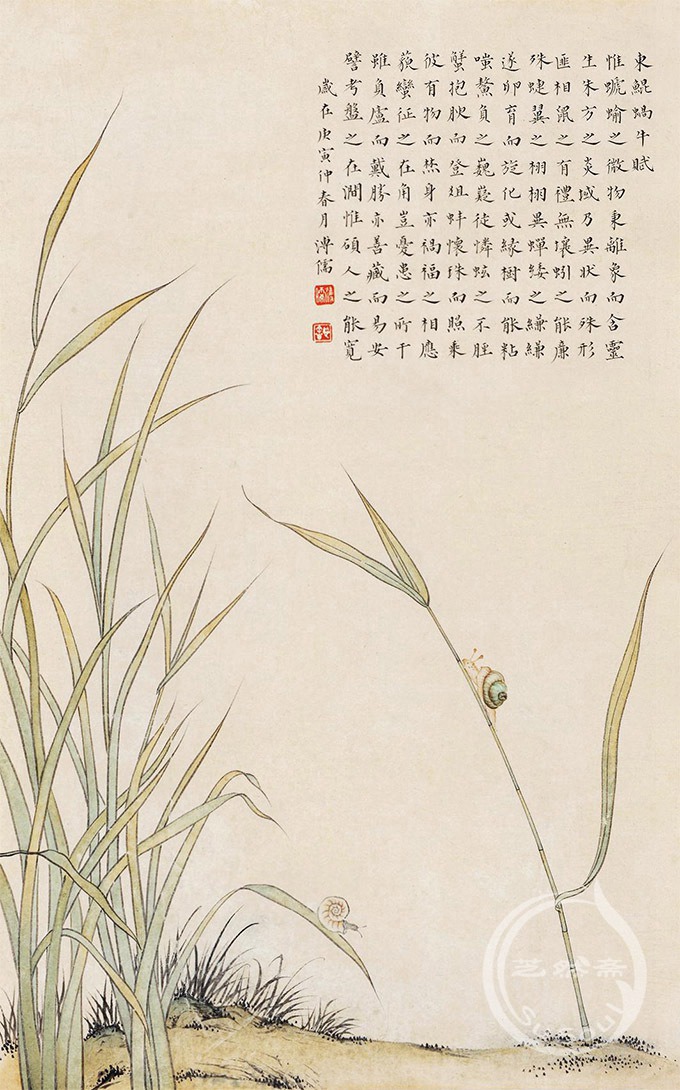 東鯤蝸牛賦
惟螔蝓之微物秉離象而含靈
生朱方之炎域乃異狀而殊形
匪相鼠之有禮無壤蚓之能廉
殊蜨翼之栩栩異蟬緌之縑縑
遂卵育而旋化或緣樹而能粘
嗤鰲負之巍嶷徒憐蚿之不脛
蟹抱而登俎蚌懷珠而照乘
彼有物而焚身亦禍福之相應
藐蠻征之在角豈憂患之所干
雖負廬而戴勝亦善藏而易安
譬考盤之在澗惟碩人之能寬
歲在庚寅仲春月溥儒
艺然斋